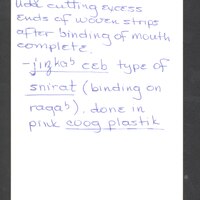 cutting excess
ends of woven strips
after binding of mouth
complete.
- jizkab ceb type of
snirat (binding on
raqab). done in
pink cuog plastik